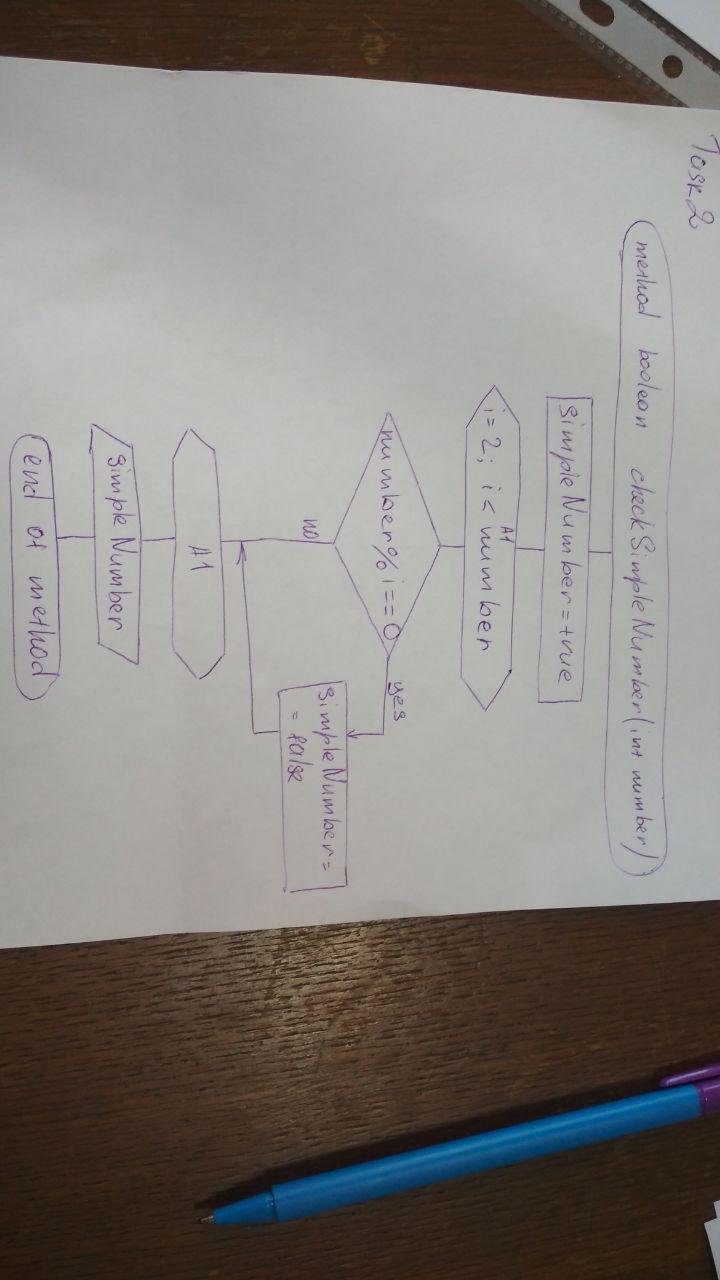 Task 2
method boolean checkSimpleNumber(int number)
simpleNumber=true
A1
i=2; i<number
number%i==0
yes
simpleNumber=
=false
no
A1
simpleNumber
end of method